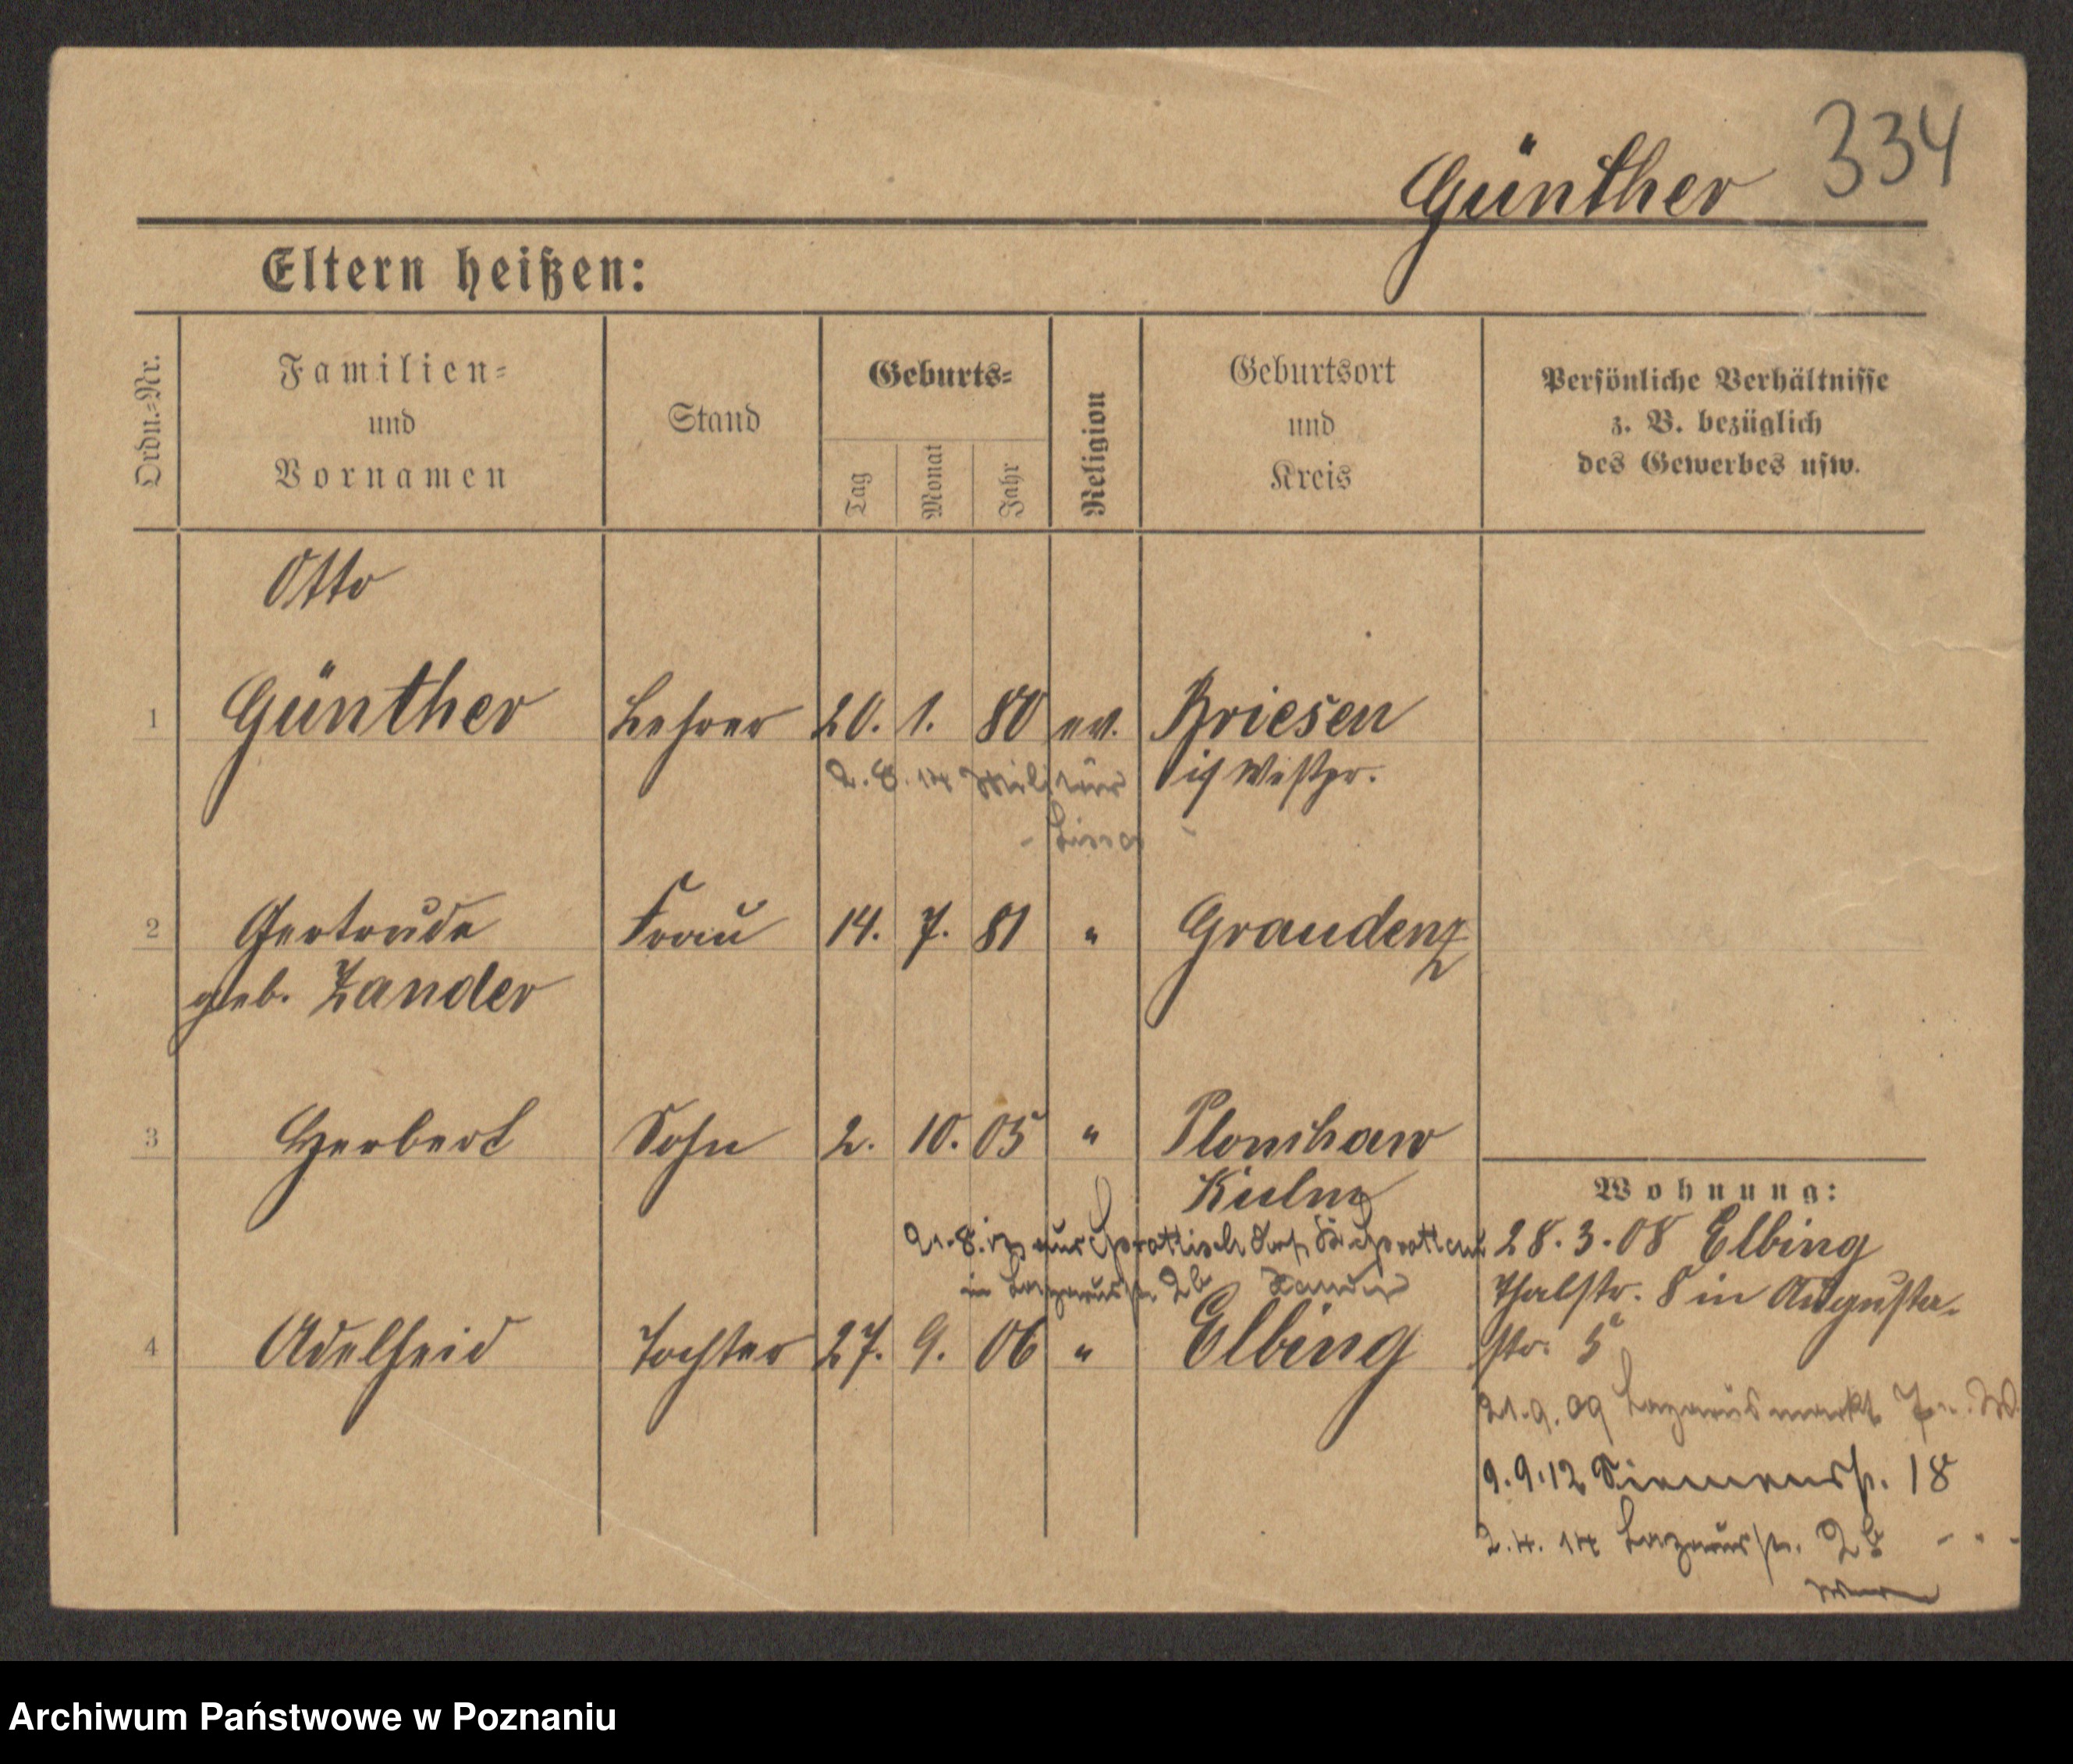 334
Günther
Eltern heißen:
Ordn.-Nr.
Familien-
und
Vornamen
Stand
Geburts-
Tag
Monat
Jahr
Religion
Geburtsort
und
Kreis
Persönliche Verhältnisse
z. B. bezüglich
des Gewerbes usw.
Otto
1 Günther Lehrer 20. 1. 80 ev. Briesen
i/ Westpr.
2. 8. 14 Militär
- Lissa
2 Gertrude Frau 14. 7. 81 " Graudenz
geb. Zander
3 Herbert Sohn 2. 10. 05 " Plonchaw
Kulm
Wohnung:
28.3.08 Elbing
Thalstr. 8 in Augusta-
str. 5
21. 8. aus
in Lazarusstr. 2b Zander
4 Adelheid Tochter 27. 9. 06 " Elbing
21.9.09 Lazarusmarkt 7
9.9.12 Siemensstr. 18
2.4.14 Lazarusstr. 2b
Archiwum Państwowe w Poznaniu